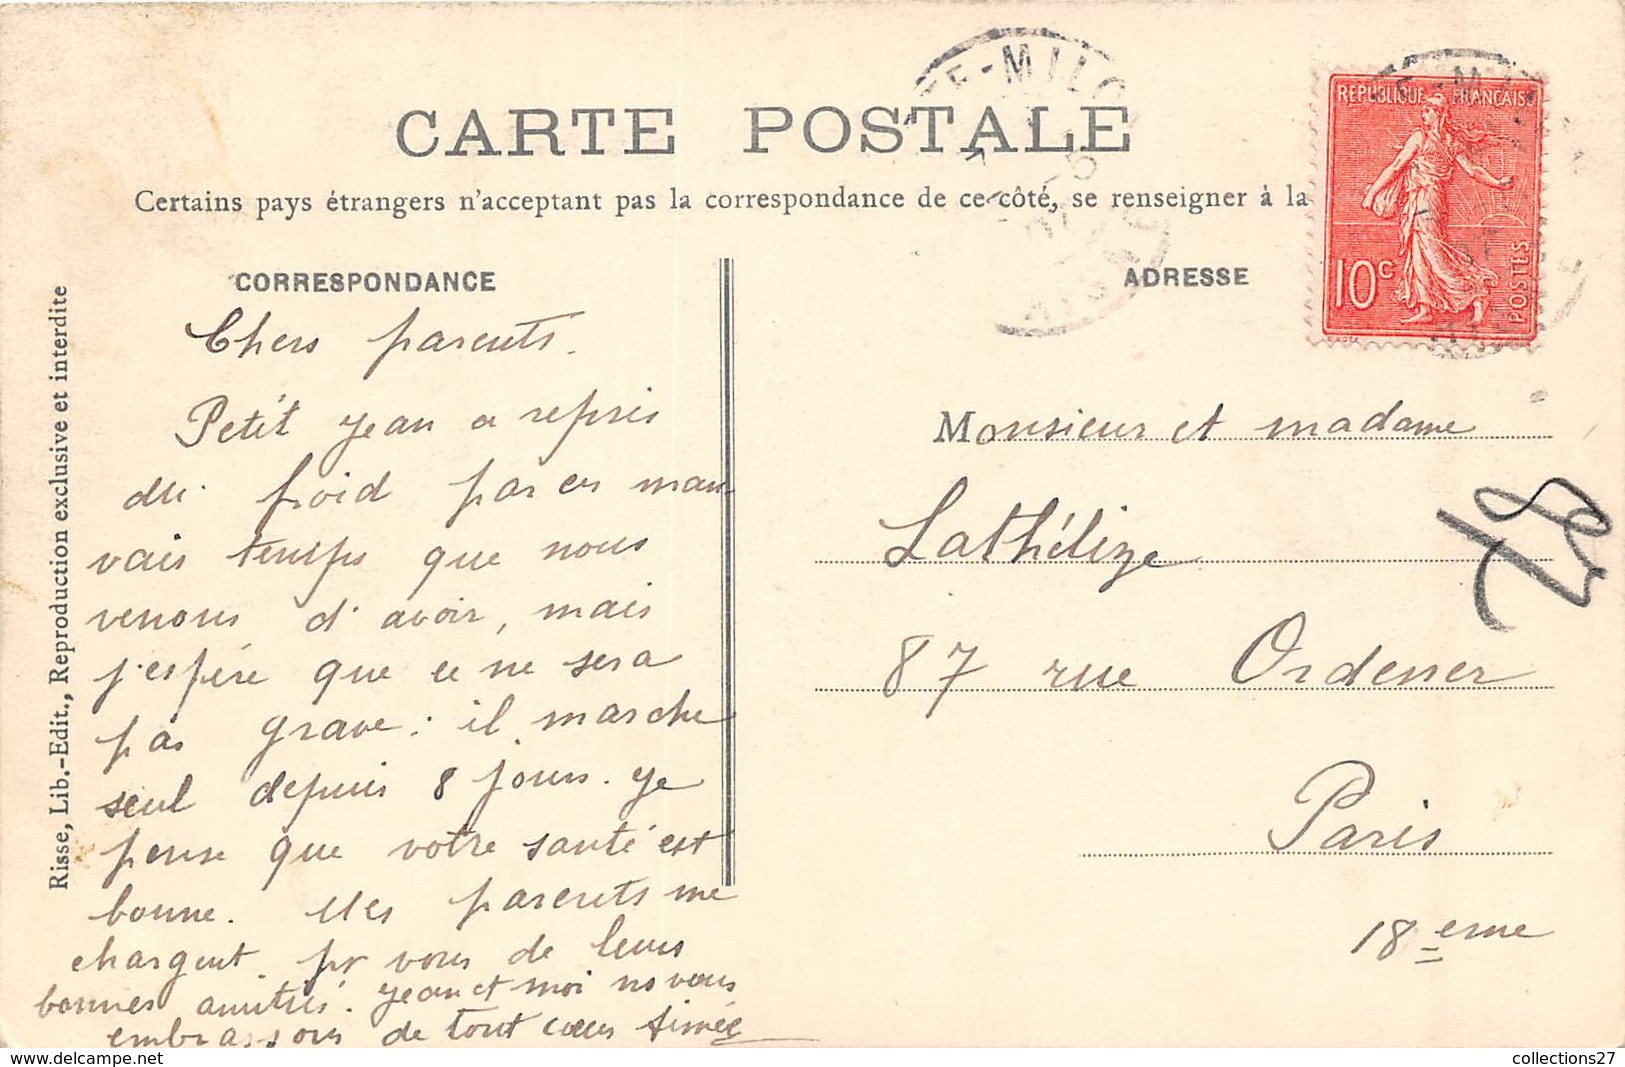 CARTE POSTALE
Certains pays étrangers n'acceptant pas la correspondance de ce côté, se renseigner à la
RÉPUBLIQUE FRANÇAISE
10c
POSTES
TE-MILO
AISNE
Risse, Lib.-Edit., Reproduction exclusive et interdite
CORRESPONDANCE
Chers parents.
Petit Jean a repris
du froid par ces mau-
vais temps que nous
venons d'avoir, mais
j'espère que ce ne sera
pas grave : il marche
seul depuis 8 jours. Je
pense que votre santé est
bonne. Mes parents me
chargent pr vous de leurs
bonnes amitiés. Jean et moi ns vous
embrassons de tout cœur Aimée
ADRESSE
Monsieur et madame
Lathélize
87 rue Ordener
Paris
18 eme
collections27